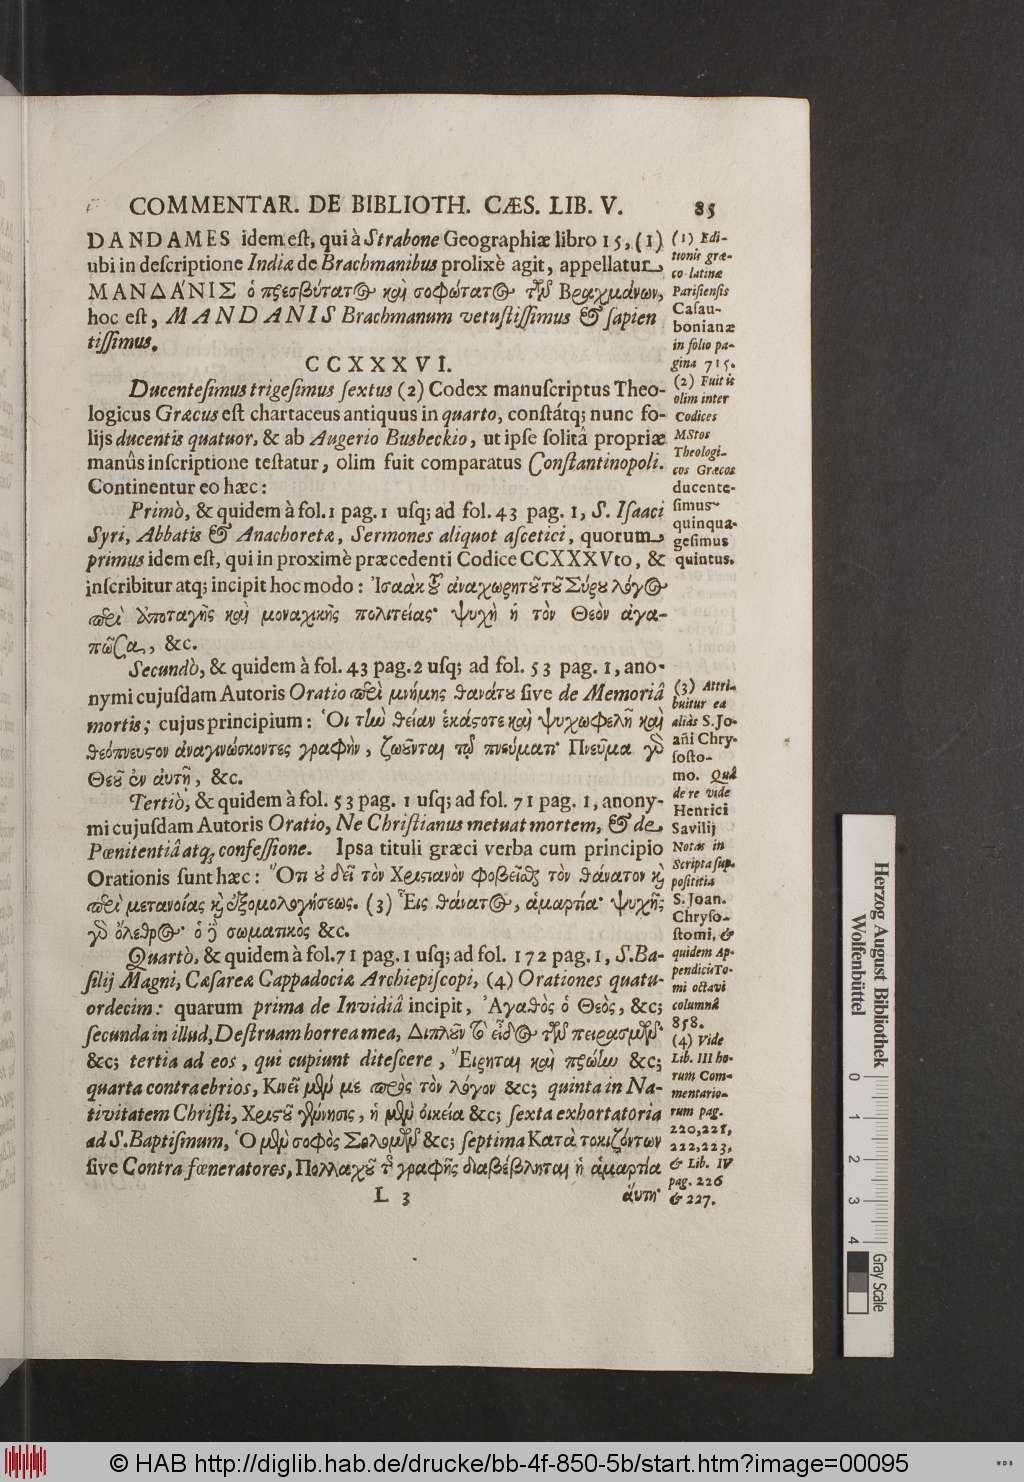 COMMENTAR. DE BIBLIOTH. CÆS. LIB. V. 85
DANDAMES idem eſt, qui à Strabone Geographiæ libro 15, (1)
ubi in deſcriptione Indiæ de Brachmanibus prolixè agit, appellatur,
ΜΑΝΔΆΝΙΣ ὁ πρεσβύτατος καὶ σοφώτατος τῶν Βραχμάνων,
hoc eſt, MANDANIS Brachmanum vetuſtiſſimus & ſapien
tiſſimus.
CCXXXVI.
Ducenteſimus trigeſimus ſextus (2) Codex manuſcriptus Theo-
logicus Græcus eſt chartaceus antiquus in quarto, conſtátq; nunc fo-
lijs ducentis quatuor, & ab Augerio Busbeckio, ut ipſe ſolitâ propriæ
manûs inſcriptione teſtatur, olim fuit comparatus Conſtantinopoli.
Continentur eo hæc:
Primò, & quidem à fol. 1 pag. 1 uſq; ad fol. 43 pag. 1, S. Iſaaci
Syri, Abbatis & Anachoretæ, Sermones aliquot aſcetici, quorum
primus idem eſt, qui in proximè præcedenti Codice CCXXXVto, &
inſcribitur atq; incipit hoc modo: Ἰσαὰκ τοῦ ἀναχωρητοῦ τοῦ Σύρου λόγος
περὶ ὑποταγῆς καὶ μοναχικῆς πολιτείας· ψυχὴ ἡ τὸν Θεὸν ἀγα-
πῶσα, &c.
Secundò, & quidem à fol. 43 pag. 2 uſq; ad fol. 53 pag. 1, ano-
nymi cujuſdam Autoris Oratio περὶ μνήμης θανάτου ſive de Memoriâ
mortis; cujus principium: Ὁι τὴν θείαν ἑκάστοτε καὶ ψυχωφελῆ καὶ
θεόπνευστον ἀναγινώσκοντες γραφὴν, ζωοῦνται τῷ πνεύματι· Πνεῦμα γὸ
Θεοῦ ἐν ἀυτῇ, &c.
Tertiò, & quidem à fol. 53 pag. 1 uſq; ad fol. 71 pag. 1, anony-
mi cujuſdam Autoris Oratio, Ne Chriſtianus metuat mortem, & de
Pœnitentiâ atq; confeſſione. Ipsa tituli græci verba cum principio
Orationis ſunt hæc: Ὅτι οὐ δεῖ τὸν Χριστιανὸν φοβεῖσθαι τὸν θάνατον καὶ
περὶ μετανοίας καὶ ἐξομολογήσεως. (3) Ἐις θάνατος, ἁμαρτία· ψυχῆς
γὸ ὄλεθρος· ὁ γὸ σωματικὸς &c.
Quartò, & quidem à fol. 71 pag. 1 uſq; ad fol. 172 pag. 1, S. Ba-
ſilij Magni, Cæſareæ Cappadociæ Archiepiſcopi, (4) Orationes quatu-
ordecim: quarum prima de Invidiâ incipit, Ἀγαθὸς ὁ Θεὸς, &c;
ſecunda in illud, Deſtruam horrea mea, Διπλοῦν τὸ εἶδος τῶν πειρασμῶν·
&c; tertia ad eos, qui cupiunt diteſcere, Ἔιρηται καὶ πρώην &c;
quarta contra ebrios, Κινεῖ μέν με πρὸς τὸν λόγον &c; quinta in Na-
tivitatem Chriſti, Χριστοῦ γέννησις, ἡ μὲν ὀικεία &c; ſexta exhortatoria
ad S. Baptiſmum, Ὁ μὲν σοφὸς Σολομῶν &c; ſeptima Κατὰ τοκιζόντων
ſive Contra fœneratores, Πολλαχοῦ τῆς γραφῆς διαβέβληται ἡ ἁμαρτία
L 3 ἅυτη·
(1) Edi-
tionis græ-
co latinæ
Pariſienſis
Caſau-
bonianæ
in folio pa-
gina 715.
(2) Fuit is
olim inter
Codices
MStos
Theologi-
cos Græcos
ducente-
ſimus
quinqua-
geſimus
quintus.
(3) Attri-
buitur ea
aliàs S. Jo-
añi Chry-
ſoſto-
mo. Quâ
de re vide
Henrici
Savilij
Notas in
Scripta ſup-
poſititia
S. Joan.
Chryſo-
ſtomi, &
quidem Ap-
pendicis To-
mi octavi
columnâ
858.
(4) Vide
Lib. III ho-
rum Com-
mentario-
rum pag.
220, 221,
222, 223,
& Lib. IV
pag. 226
& 227.
Herzog August Bibliothek
Wolfenbüttel
0 1 2 3 4
Gray Scale
© HAB http://diglib.hab.de/drucke/bb-4f-850-5b/start.htm?image=00095